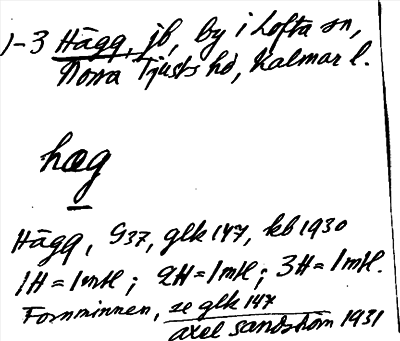 1-3 Hägg, jb, by i Lofta sn,
Norra Tjusts hd, Kalmar l.
hæg
Hägg, G37, glk 147, kb 1930
1H = 1mtl; 2H = 1mtl; 3H = 1mtl.
Fornminnen, se glk 147
Axel Sandström 1931